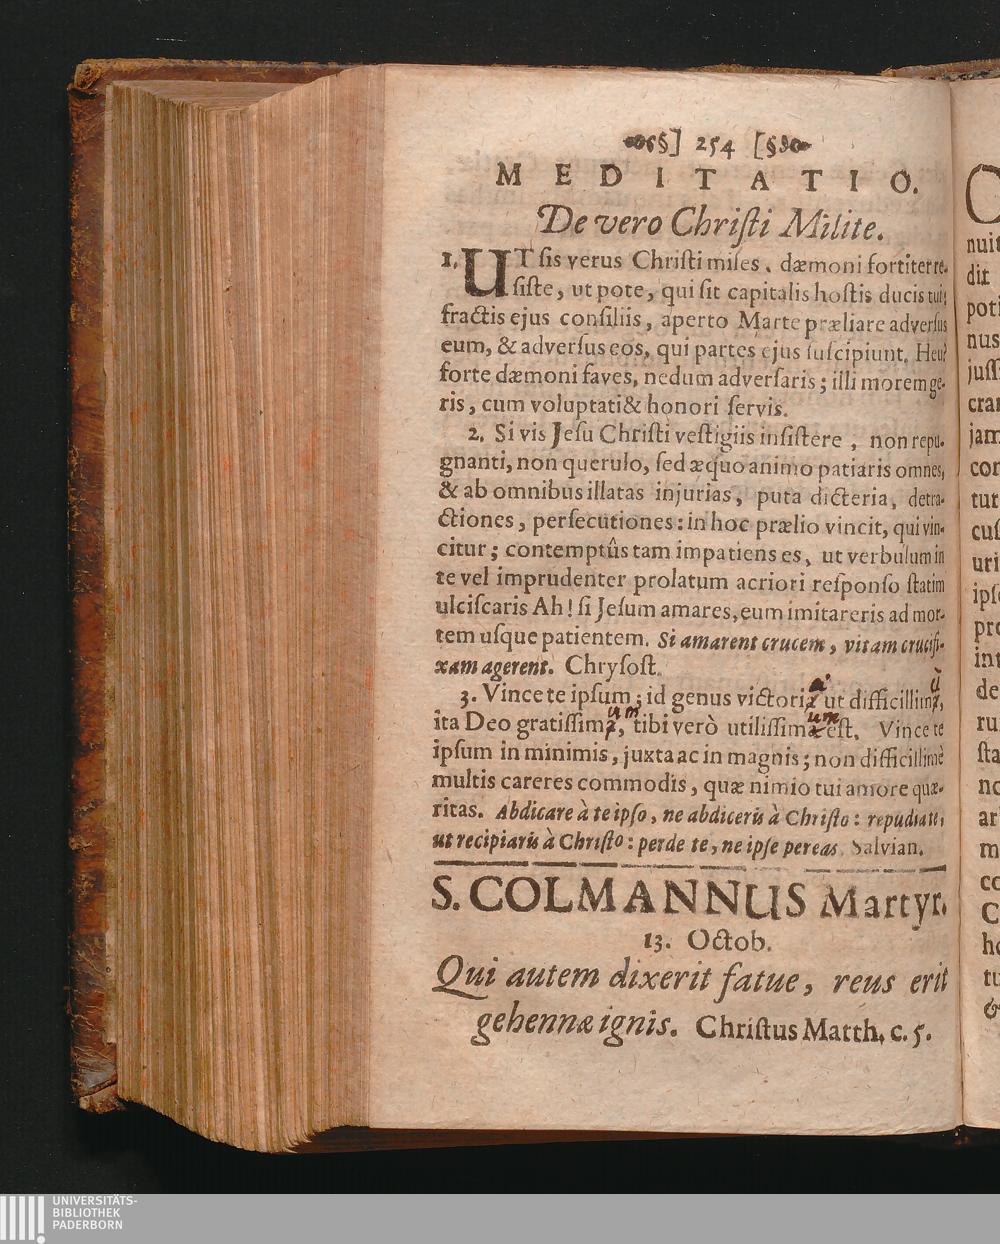 §] 254 [§
MEDITATIO.
De vero Christi Milite.
1. UT sis verus Christi miles, dæmoni fortiter re-
siste, ut pote, qui sit capitalis hostis ducis tui;
fractis ejus consiliis, aperto Marte præliare adversus
eum, & adversus eos, qui partes ejus suscipiunt. Heu!
forte dæmoni faves, nedum adversaris; illi morem ge-
ris, cum voluptati & honori servis.
2. Si vis Jesu Christi vestigiis insistere, non repu-
gnanti, non querulo, sed æquo animo patiaris omnes,
& ab omnibus illatas injurias, puta dicteria, detra-
ctiones, persecutiones: in hoc prælio vincit, qui vin-
citur; contemptûs tam impatiens es, ut verbulum in
te vel imprudenter prolatum acriori responso statim
ulciscaris Ah! si Jesum amares, eum imitareris ad mor-
tem usque patientem. Si amarent crucem, vitam crucifi-
xam agerent. Chrysost.
3. Vince te ipsum; id genus victoriæ ut difficillimæ,
ita Deo gratissimæ, tibi verò utilissimæ est. Vince te
ipsum in minimis, juxta ac in magnis; non difficillimè
multis careres commodis, quæ nimio tui amore quæ-
ritas. Abdicare à te ipso, ne abdiceris à Christo: repudiate,
ut recipiaris à Christo: perde te, ne ipse pereas. Salvian.
S. COLMANNUS Martyr.
13. Octob.
Qui autem dixerit fatue, reus erit
gehennæ ignis. Christus Matth. c. 5.
nuit
dit
poti
nus
jussi
cran
jam
con
tut
cus
uri
ipso
pro
int
de
ru
sta
no
ar
m
co
C
ho
tu
&
UNIVERSITÄTS-
BIBLIOTHEK
PADERBORN